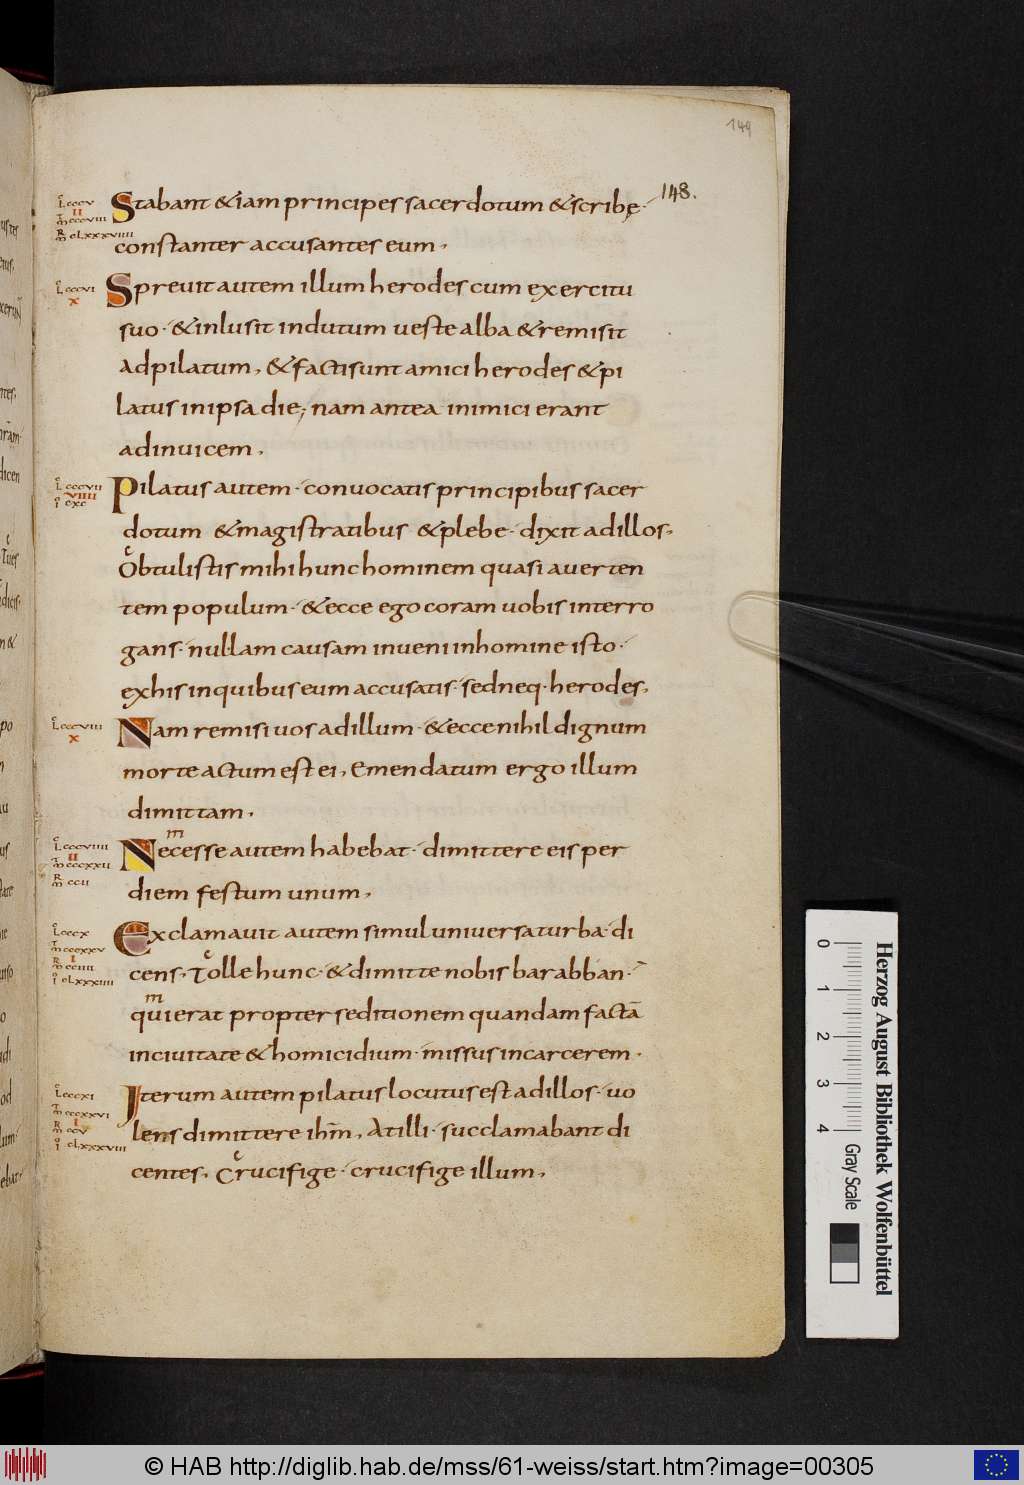 149
148.
L cccv
II
M cccviii
M clxxxviiii
Stabant &iam principes sacerdotum &scribę·
constanter accusantes eum,
L cccvi
x
Spreuit autem illum herodes cum exercitu
suo· &inlusit indutum ueste alba &remisit
adpilatum, &factisunt amici herodes &pi
latus inipsa die; nam antea inimici erant
adinuicem,
L cccvii
viiii
I cxc
Pilatus autem· conuocatis principibus sacer
dotum &magistratibus &plebe· dixit adillos,
Obtulistis mihi hunc hominem quasi auerten
tem populum· &ecce ego coram uobis interro
gans· nullam causam inueni inhomine isto·
exhis inquibus eum accusatis· sedneq· herodes,
L cccviii
x
Nam remisi uos adillum· &ecce nihil dignum
morte actum est ei, Emendatum ergo illum
dimittam,
L cccviiii
II
M cccxxii
M ccii
m
Necesse autem habebat· dimittere eis per
diem festum unum,
L cccx
M cccxxv
I
M cciiii
I clxxxiiii
Exclamauit autem simul uniuersa turba· di
cens, Tolle hunc· &dimitte nobis barabban·
m
qui erat propter seditionem quandam factā
inciuitate &homicidium· missus incarcerem·
L cccxi
M cccxxvi
I
M ccv
I clxxxviii
Iterum autem pilatus locutus est adillos· uo
lens dimittere ihm̄, Atilli· succlamabant di
centes, Crucifige· crucifige illum,
0 1 2 3 4
Gray Scale
Herzog August Bibliothek Wolfenbüttel
© HAB http://diglib.hab.de/mss/61-weiss/start.htm?image=00305